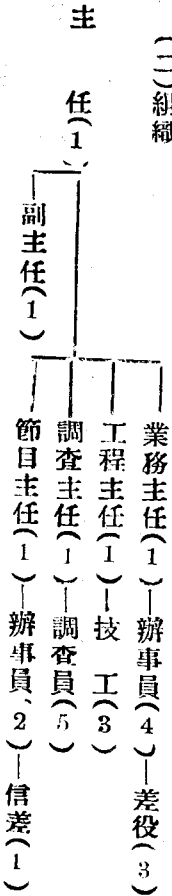 (二)組織
主任(1)
副主任(1)
業務主任(1)—辦事員(4)—差役(3)
工程主任(1)—技工(3)
調查主任(1)—調查員(5)
節目主任(1)—辦事員(2)—信差(1)